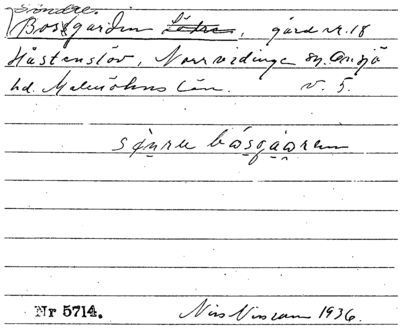 Söndre
Bosgården Södra, gård nr. 18
Håstenslöv, Norrvidinge sn. Onsjö
hd. Malmöhus län. v. 5.
sönre båsgåaren
Nr 5714. Nils Nilsson 1936.